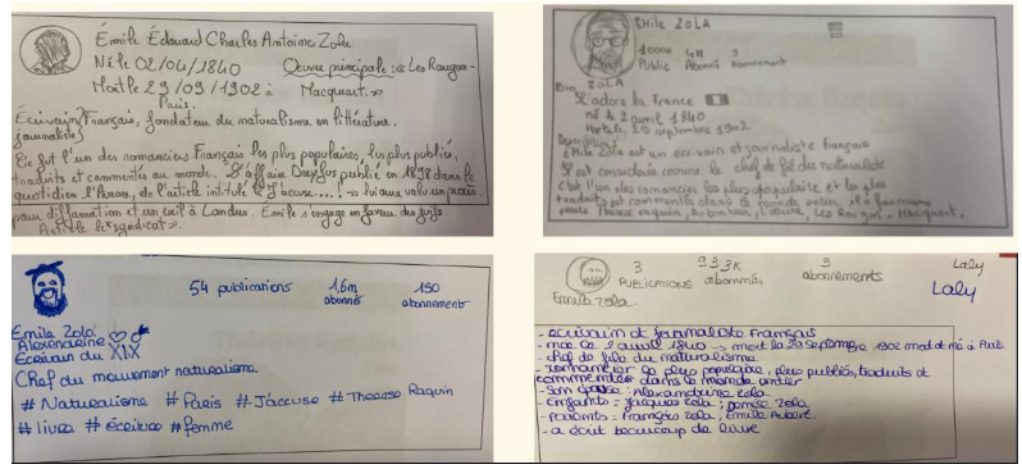 Émile Édouard Charles Antoine Zola
Né le 02/04/1840 Oeuvre principale : « Les Rougon-
Mort le 29/09/1902 à Macquart. »
Paris.
Écrivain Français, fondateur du naturalisme en littérature.
journaliste
Ce fut l'un des romanciers Français les plus populaires, les plus publiés,
traduits et commentés au monde. L'affaire Dreyfus publié en 1898 dans le
quotidien l'Aurore, de l'article intitulé « J'accuse...! » lui aura valu un procès
pour diffamation et un exil à Londres. Émile s'engage en faveur des juifs.
Article le "syndicat".
EMile ZOLA
10000 4M 3
Public Abonné abonnement
Bio ZOLA
J'adore la France
né le 2 avril 1840
Morte le 29 septembre 1902
Description
EMile Zola est un écrivain et journaliste français
Il est considéré comme le chef de fil du naturaliste
c'est l'un des romancier les plus populaire et les plus
traduits et commentés dans le monde entier
Thérèse raquin, Les Rougon-Macquart.
54 publications 1,6m 150
abonné abonnement
Emile Zola
Alexendrine
Écrivain du XIX
Chef du mouvement naturalisme
# Naturalisme # Paris # J'accuse # Therese Raquin
# livre # écriture # femme
3 933K 3 Laly
PUBLICATIONS abonnés abonnements Laly
Emile zola.
- écrivain et journaliste Français
- née le 2 avril 1840 -> mort le 29 septembre 1902 mort et né à Paris.
- chef de file du naturalisme
- romancier le plus populaire, plus publiés, traduits et
commentés dans le monde entier
- son épouse : Alexandrine zola
- Enfants = Jacques zola ; Denise zola
- Parents = François zola ; Emilie Aubert.
- a écrit beaucoup de livre